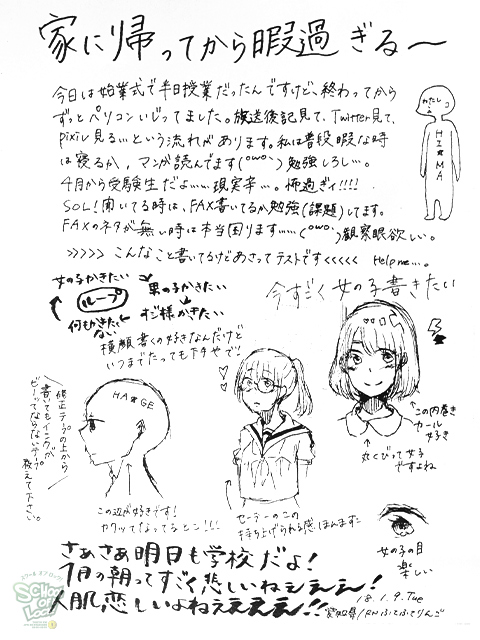 家に帰ってから暇過ぎる〜
今日は始業式で半日授業だったんですけど、終わってから
ずっとペリコンいじってました。放送後記見て、Twitter見て、
pixiv見る…という流れがあります。私は普段暇な時
は寝るか、マンガ読んでます(^owo^)勉強しろし…。
4月から受験生だよ……現実辛…。怖過ぎィ!!!!
SOL!聞いてる時は、FAX書いてるか勉強(課題)してます。
FAXのネタが無い時は本当困ります……(^owo^)観察眼欲しい。
>>>>> こんなこと書いてるけどあさってテストです<<<<< Help me…。
わたし
HI★MA
女の子かきたい
男の子かきたい
ループ
すじ様かきたい
何もかきたくない
今すごく女の子書きたい
横顔書くの好きなんだけど
いつまでたっても下手やで!!
修正テープの上から
書いてもインクが
ビーッてならないテープ
教えて下さい。
HA★GE
この辺が好きです!
カクッてなってるとこ!!!
セーラーのこの
持ち上げられる感ほんますこ
この内巻き
カール
好き
丸くびって女子
ですよね
女の子の目
楽しい
さぁさあ明日も学校だよ!
1月の朝ってすごく悲しいねぇぇぇ!
人肌恋しいよねぇぇぇぇ!!
18.1.9.Tue
愛知県/RNふてふてりんご
スクールオブロック!
SCHOOL OF LOCK!